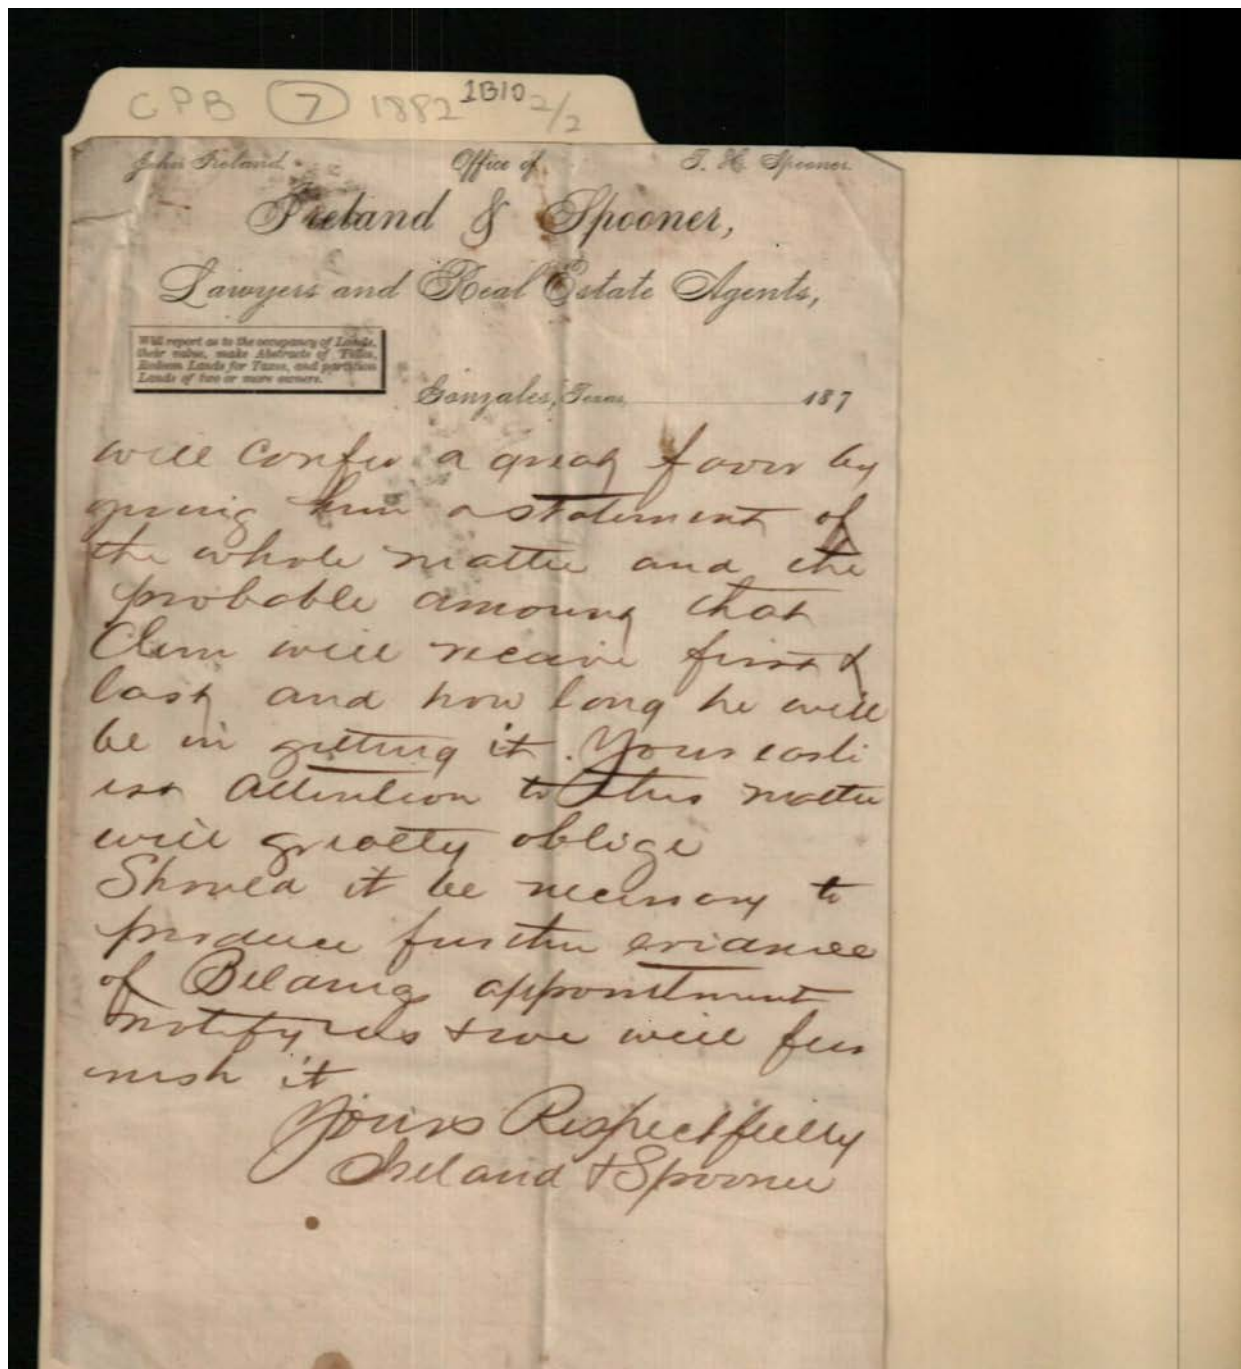 CPB 7 1882 1B10 2/2
John Ireland. Office of T. H. Spooner.
Ireland & Spooner,
Lawyers and Real Estate Agents,
Will report as to the occupancy of Lands,
their value, make Abstracts of Titles,
Redeem Lands for Taxes, and partition
Lands of two or more owners.
Gonzales, Texas, 187
will confer a great favor by
giving him a statement of
the whole matter and the
probable amount that
Clem will receive first &
last and how long he will
be in getting it. Your earli
est attention to this matter
will greatly oblige
Should it be necessary to
produce further evidance
of appointment
notify us & we will fur
nish it
Yours Respectfully
Ireland & Spooner